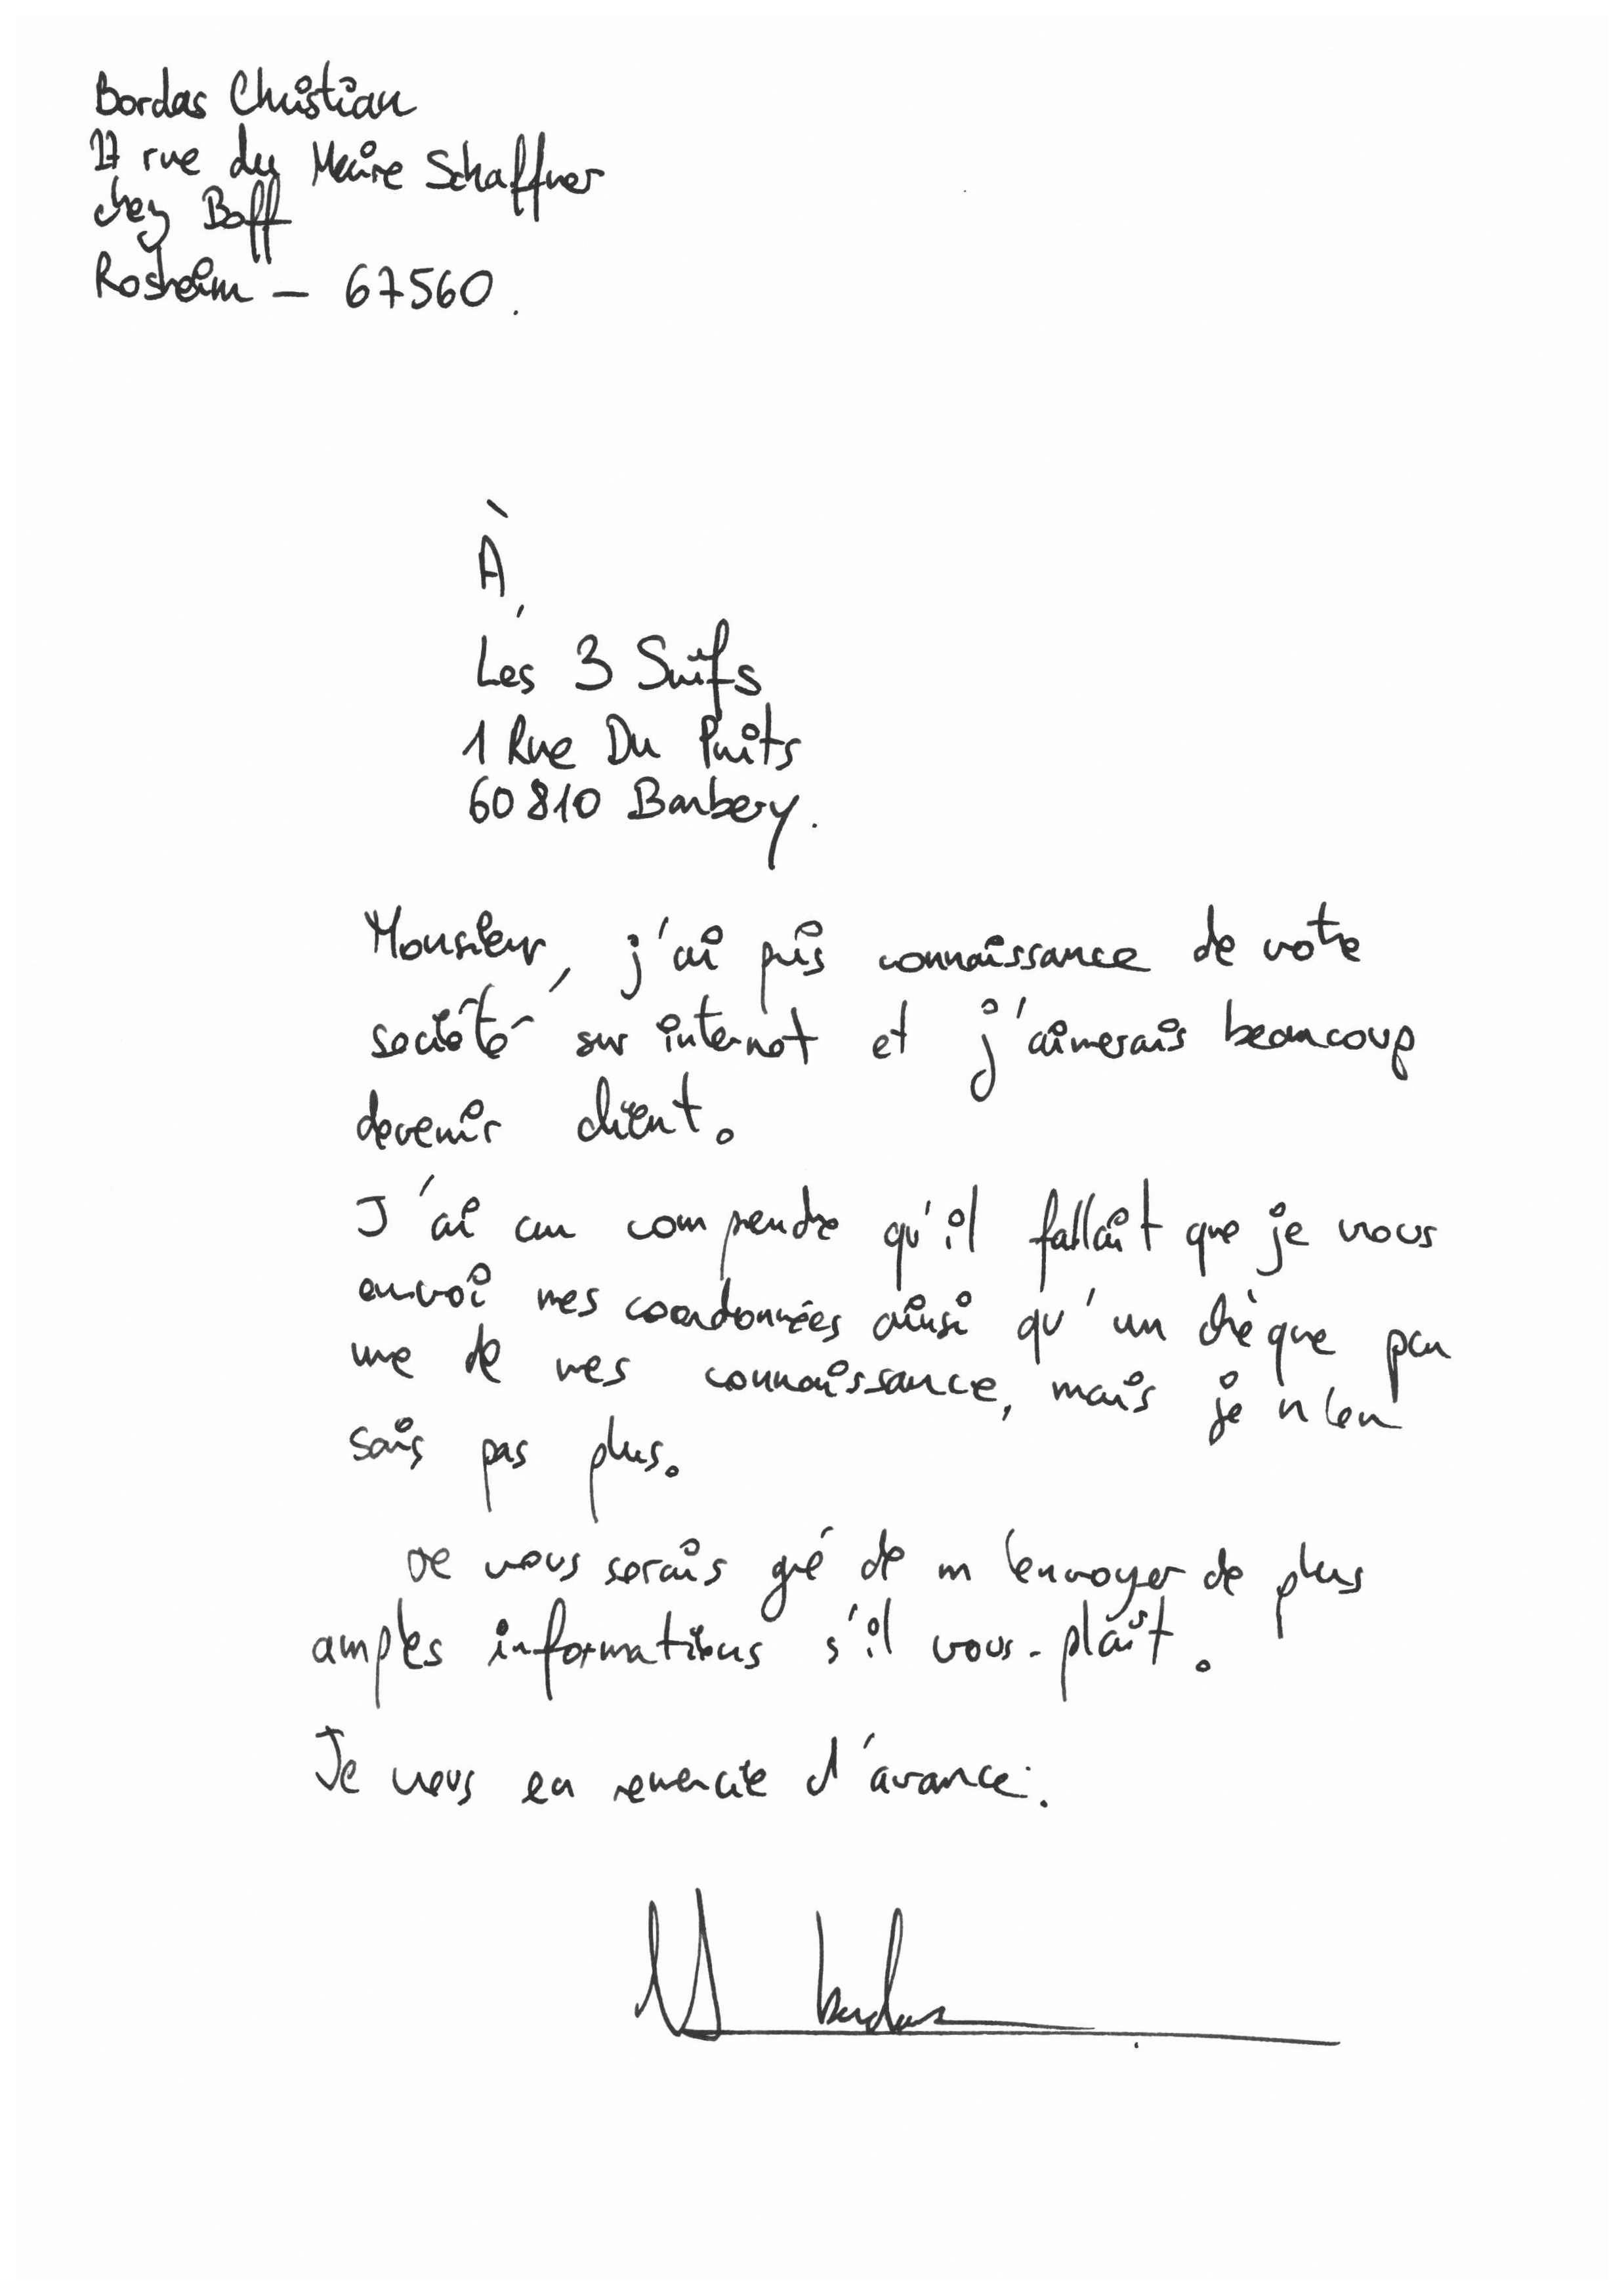 Bordas Christian
17 rue du Maire Schaffner
chez Boff
Rosheim - 67560.
À,
Les 3 Suifs
1 Rue Du Puits
60810 Barbery.
Monsieur, j'ai pris connaissance de votre
société sur internet et j'aimerais beaucoup
devenir client.
J'ai cru comprendre qu'il fallait que je vous
envoi mes coordonnées ainsi qu'un chèque par
une de mes connaissance, mais je n'en
sais pas plus.
Je vous serais gré de m'envoyer de plus
amples informations s'il vous-plaît.
Je vous en remercie d'avance.
Bordas